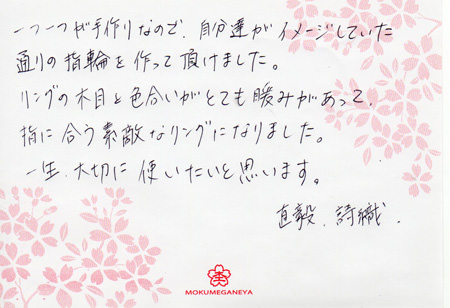 一つ一つが手作りなので、自分達がイメージしていた
通りの指輪を作って頂けました。
リングの木目と色合いがとても暖みがあって、
指に合う素敵なリングになりました。
一生、大切に使いたいと思います。
直毅、詩織.
MOKUMEGANEYA